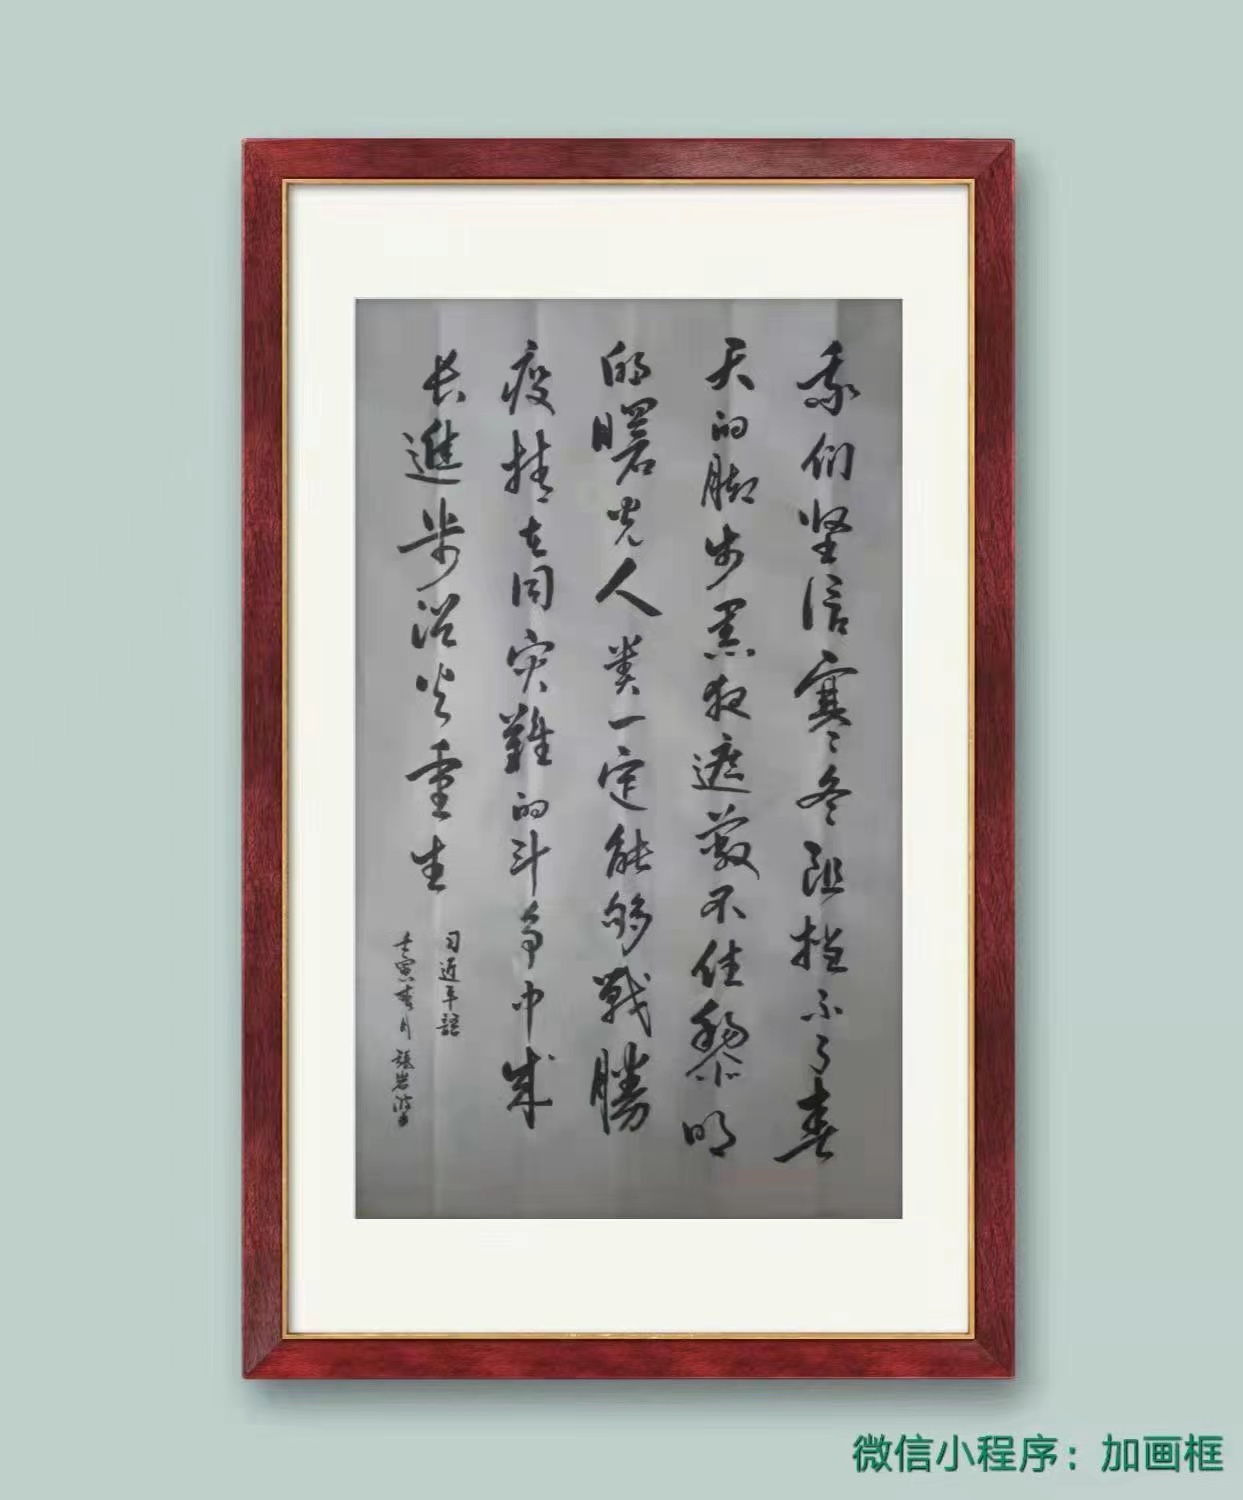 我们坚信寒冬阻挡不了春
天的脚步黑夜遮蔽不住黎明
的曙光人类一定能够战勝
疫情在同灾難的斗争中成
长進步浴火重生
习近平語
壬寅春月張岩
微信小程序：加画框